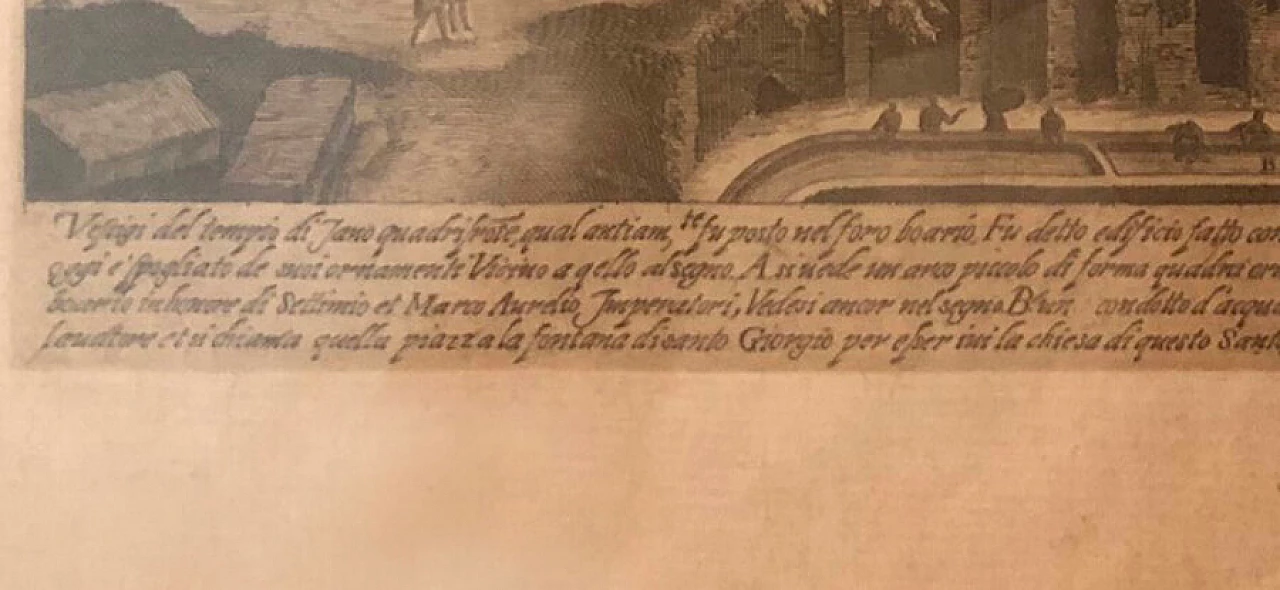 B
Vestigi del tempio di Jano quadrifrōte, qual antiam,te fu posto nel foro boario, Fu detto edificio fatto con
oggi e' spogliato de suoi ornamenti Vicino a q̄ello al segno. A si uede un arco piccolo di forma quadrat
boario in honore di Settimio et Marco Aurelio, Jmperatori, Vedesi ancor nel segno B un condotto d'acqua
lauattore et si chiama quella piazza la fontana di santo Giorgio per esser iui la chiesa di questo Santo